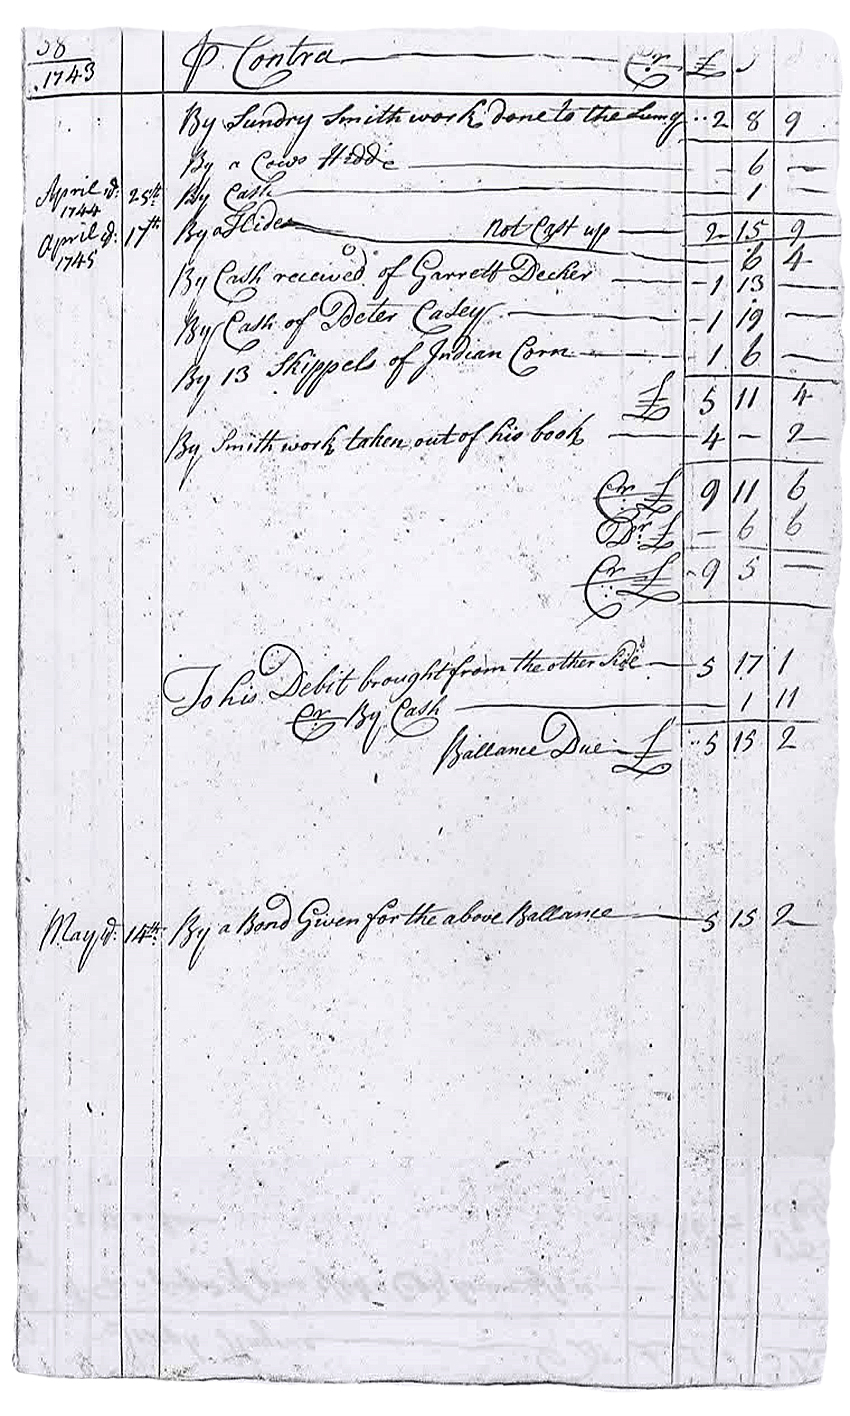 58
1743 ₱ Contra Cr £ s
By Sundry Smith work done to the Sum of 2 8 9
By a Cows Hidde — 6 —
April ye: 25th By Cash — 1 —
1744
2 15 9
April ye: 17th By a Hide not Cast up — 6 4
1745
By Cash received of Garrett Decker 1 13 —
By Cash of Peter Casey 1 19 —
By 13 Skippels of Indian Corn 1 6 —
£ 5 11 4
By Smith work taken out of his book 4 - 2
Cr £ 9 11 6
Dr £ — 6 6
Cr £ 9 5 —
To his Debit brought from the other Side 5 17 1
Cr By Cash 1 11
Ballance Due £ 5 15 2
May ye: 14th: By a Bond Given for the above Ballance 5 15 2